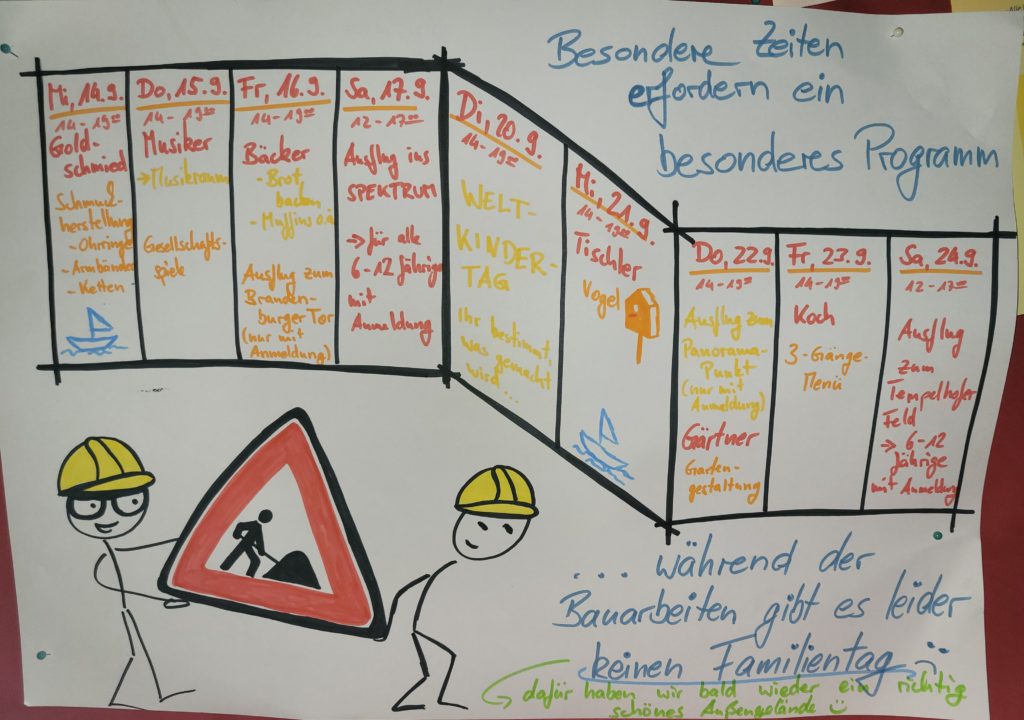 Besondere Zeiten
erfordern ein
besonderes Programm
Mi, 14.9.
14-19⁰⁰
Gold-
schmied
Schmuck-
herstellung
- Ohrringe
- Armbänder
- Ketten
Do, 15.9.
14-19⁰⁰
Musiker
→ Musikraum
Gesellschafts-
spiele
Fr, 16.9.
14-19⁰⁰
Bäcker
- Brot
backen
- Muffins o.ä.
Ausflug zum
Branden-
burger Tor
(nur mit
Anmeldung)
Sa, 17.9.
12-17⁰⁰
Ausflug ins
SPEKTRUM
→ für alle
6-12 Jährige
mit
Anmeldung
Di, 20.9.
14-19⁰⁰
WELT-
KINDER-
TAG
Ihr bestimmt,
was gemacht
wird ...
Mi, 21.9.
14-19⁰⁰
Tischler
Vogel
Do, 22.9.
14-19⁰⁰
Ausflug zum
Panorama-
Punkt
(nur mit
Anmeldung)
Gärtner
Garten-
gestaltung
Fr, 23.9.
14-19⁰⁰
Koch
3-Gänge-
Menü
Sa, 24.9.
12-17⁰⁰
Ausflug
zum
Tempelhofer
Feld
→ 6-12
Jährige
mit Anmeldung
... während der
Bauarbeiten gibt es leider
keinen Familientag
dafür haben wir bald wieder ein richtig
schönes Außengelände